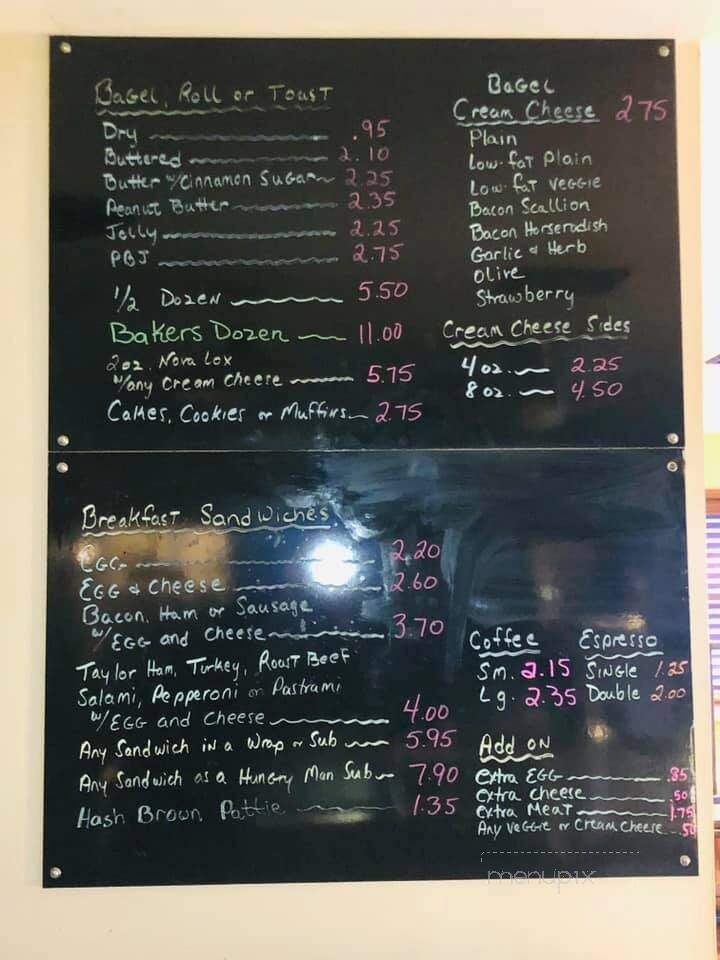 Bagel, Roll or Toast
Dry .95
Buttered 2.10
Butter w/Cinnamon Sugar 2.25
Peanut Butter 2.35
Jelly 2.25
PBJ 2.75
1/2 Dozen 5.50
Bakers Dozen 11.00
2oz. Nova Lox
w/any Cream Cheese 5.75
Cakes, Cookies or Muffins 2.75
Bagel
Cream Cheese 2.75
Plain
Low-fat Plain
Low-fat veggie
Bacon Scallion
Bacon Horserodish
Garlic & Herb
Olive
Strawberry
Cream Cheese Sides
4 oz. 2.25
8 oz. 4.50
Breakfast Sandwiches
Egg 2.20
Egg & Cheese 2.60
Bacon, Ham or Sausage
w/Egg and Cheese 3.70
Taylor Ham, Turkey, Roast Beef
Salami, Pepperoni or Pastrami
w/Egg and Cheese 4.00
Any Sandwich in a Wrap or Sub 5.95
Any Sandwich as a Hungry Man Sub 7.90
Hash Brown Pattie 1.35
Coffee
Sm. 2.15
Lg. 2.35
Espresso
Single 1.25
Double 2.00
Add on
extra Egg .85
extra cheese .50
extra Meat 1.75
Any veggie or Cream Cheese .50
menupix